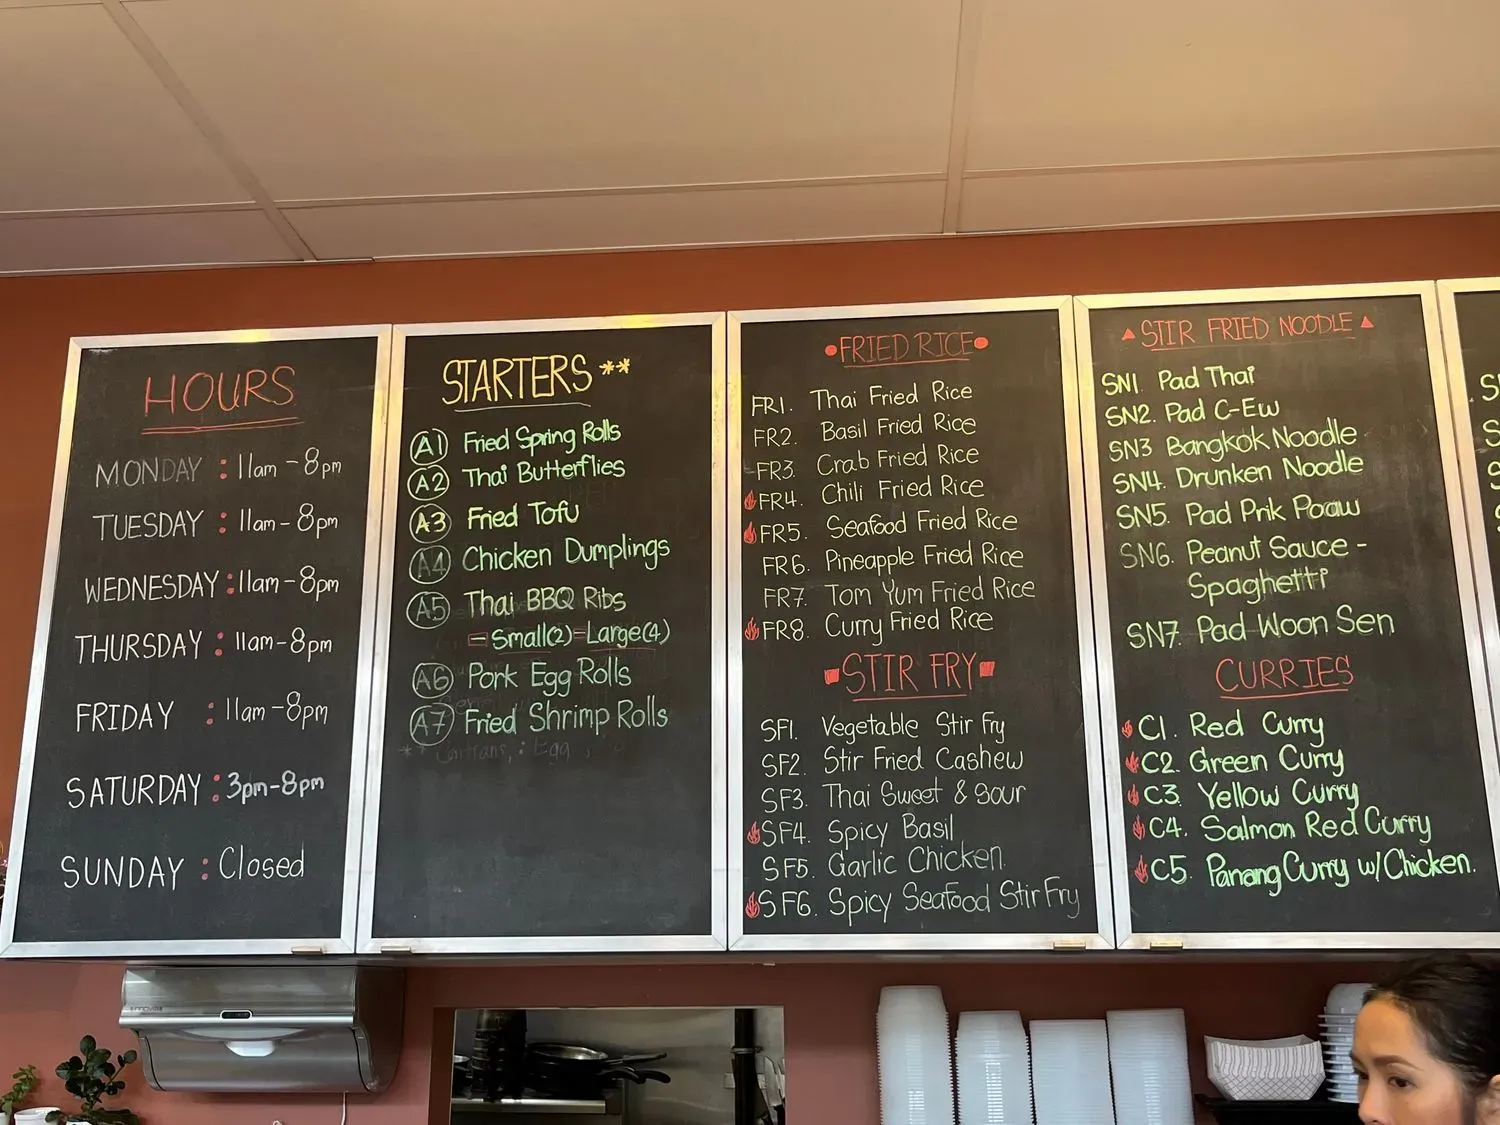 HOURS
MONDAY : 11am - 8pm
TUESDAY : 11am - 8pm
WEDNESDAY : 11am - 8pm
THURSDAY : 11am - 8pm
FRIDAY : 11am - 8pm
SATURDAY : 3pm - 8pm
SUNDAY : Closed
STARTERS **
A1 Fried Spring Rolls
A2 Thai Butterflies
A3 Fried Tofu
A4 Chicken Dumplings
A5 Thai BBQ Ribs
Small(2) Large(4)
A6 Pork Egg Rolls
A7 Fried Shrimp Rolls
** : Egg
•FRIED RICE•
FR1. Thai Fried Rice
FR2. Basil Fried Rice
FR3. Crab Fried Rice
FR4. Chili Fried Rice
FR5. Seafood Fried Rice
FR6. Pineapple Fried Rice
FR7. Tom Yum Fried Rice
FR8. Curry Fried Rice
STIR FRY
SF1. Vegetable Stir Fry
SF2. Stir Fried Cashew
SF3. Thai Sweet & Sour
SF4. Spicy Basil
SF5. Garlic Chicken
SF6. Spicy Seafood Stir Fry
▲ STIR FRIED NOODLE ▲
SN1. Pad Thai
SN2. Pad C-Ew
SN3 Bangkok Noodle
SN4. Drunken Noodle
SN5. Pad Prik Paaw
SN6. Peanut Sauce -
Spaghetti
SN7. Pad Woon Sen
CURRIES
C1. Red Curry
C2. Green Curry
C3. Yellow Curry
C4. Salmon Red Curry
C5. Panang Curry w/Chicken.